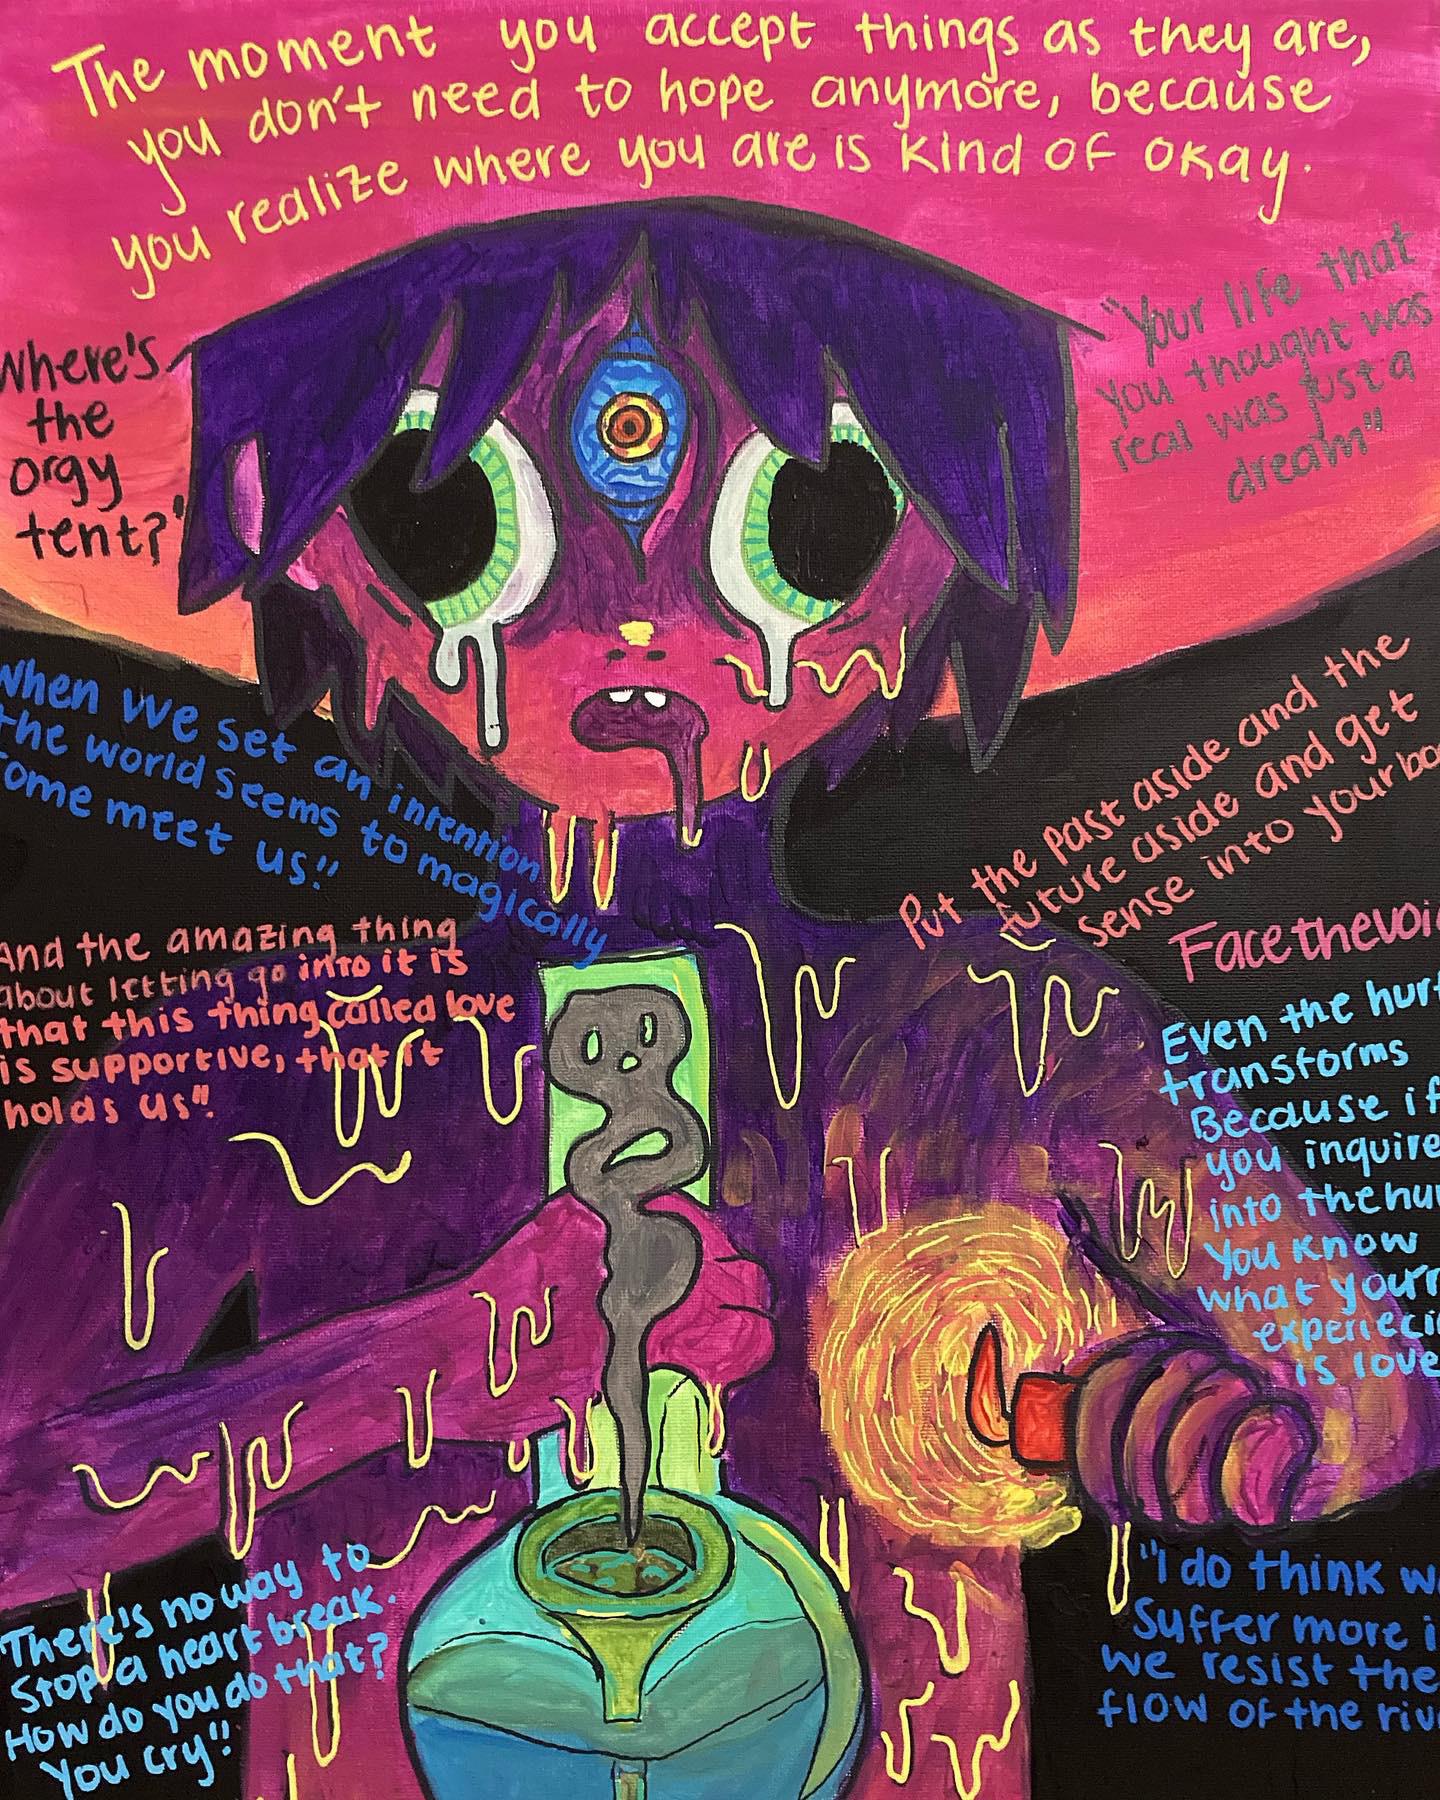 The moment you accept things as they are,
you don't need to hope anymore, because
you realize where you are is kind of okay.
Where's
the
orgy
tent?"
"Your life that
you thought was
real was just a
dream"
When we set an intention
the world seems to magically
come meet us."
Put the past aside and the
future aside and get
sense into your
And the amazing thing
about letting go into it is
that this thing called love
is supportive, that it
holds us".
Face the
Even the hurt
transforms
Because if
you inquire
into the
You know
what
is love
There's no way to
Stop a heart break.
How do you do that?
You cry".
"I do think
Suffer more
we resist the
flow of the